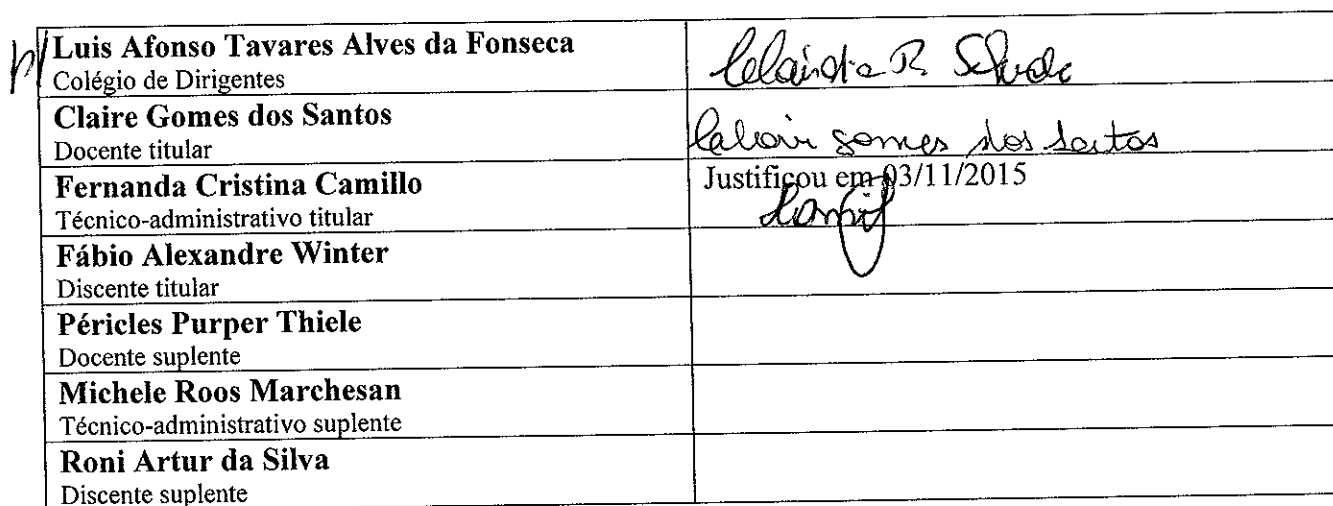 p/ Luis Afonso Tavares Alves da Fonseca
Colégio de Dirigentes
Claire Gomes dos Santos
Docente titular
gomes dos santos
Fernanda Cristina Camillo
Justificou em 03/11/2015
Técnico-administrativo titular
Fábio Alexandre Winter
Discente titular
Péricles Purper Thiele
Docente suplente
Michele Roos Marchesan
Técnico-administrativo suplente
Roni Artur da Silva
Discente suplente